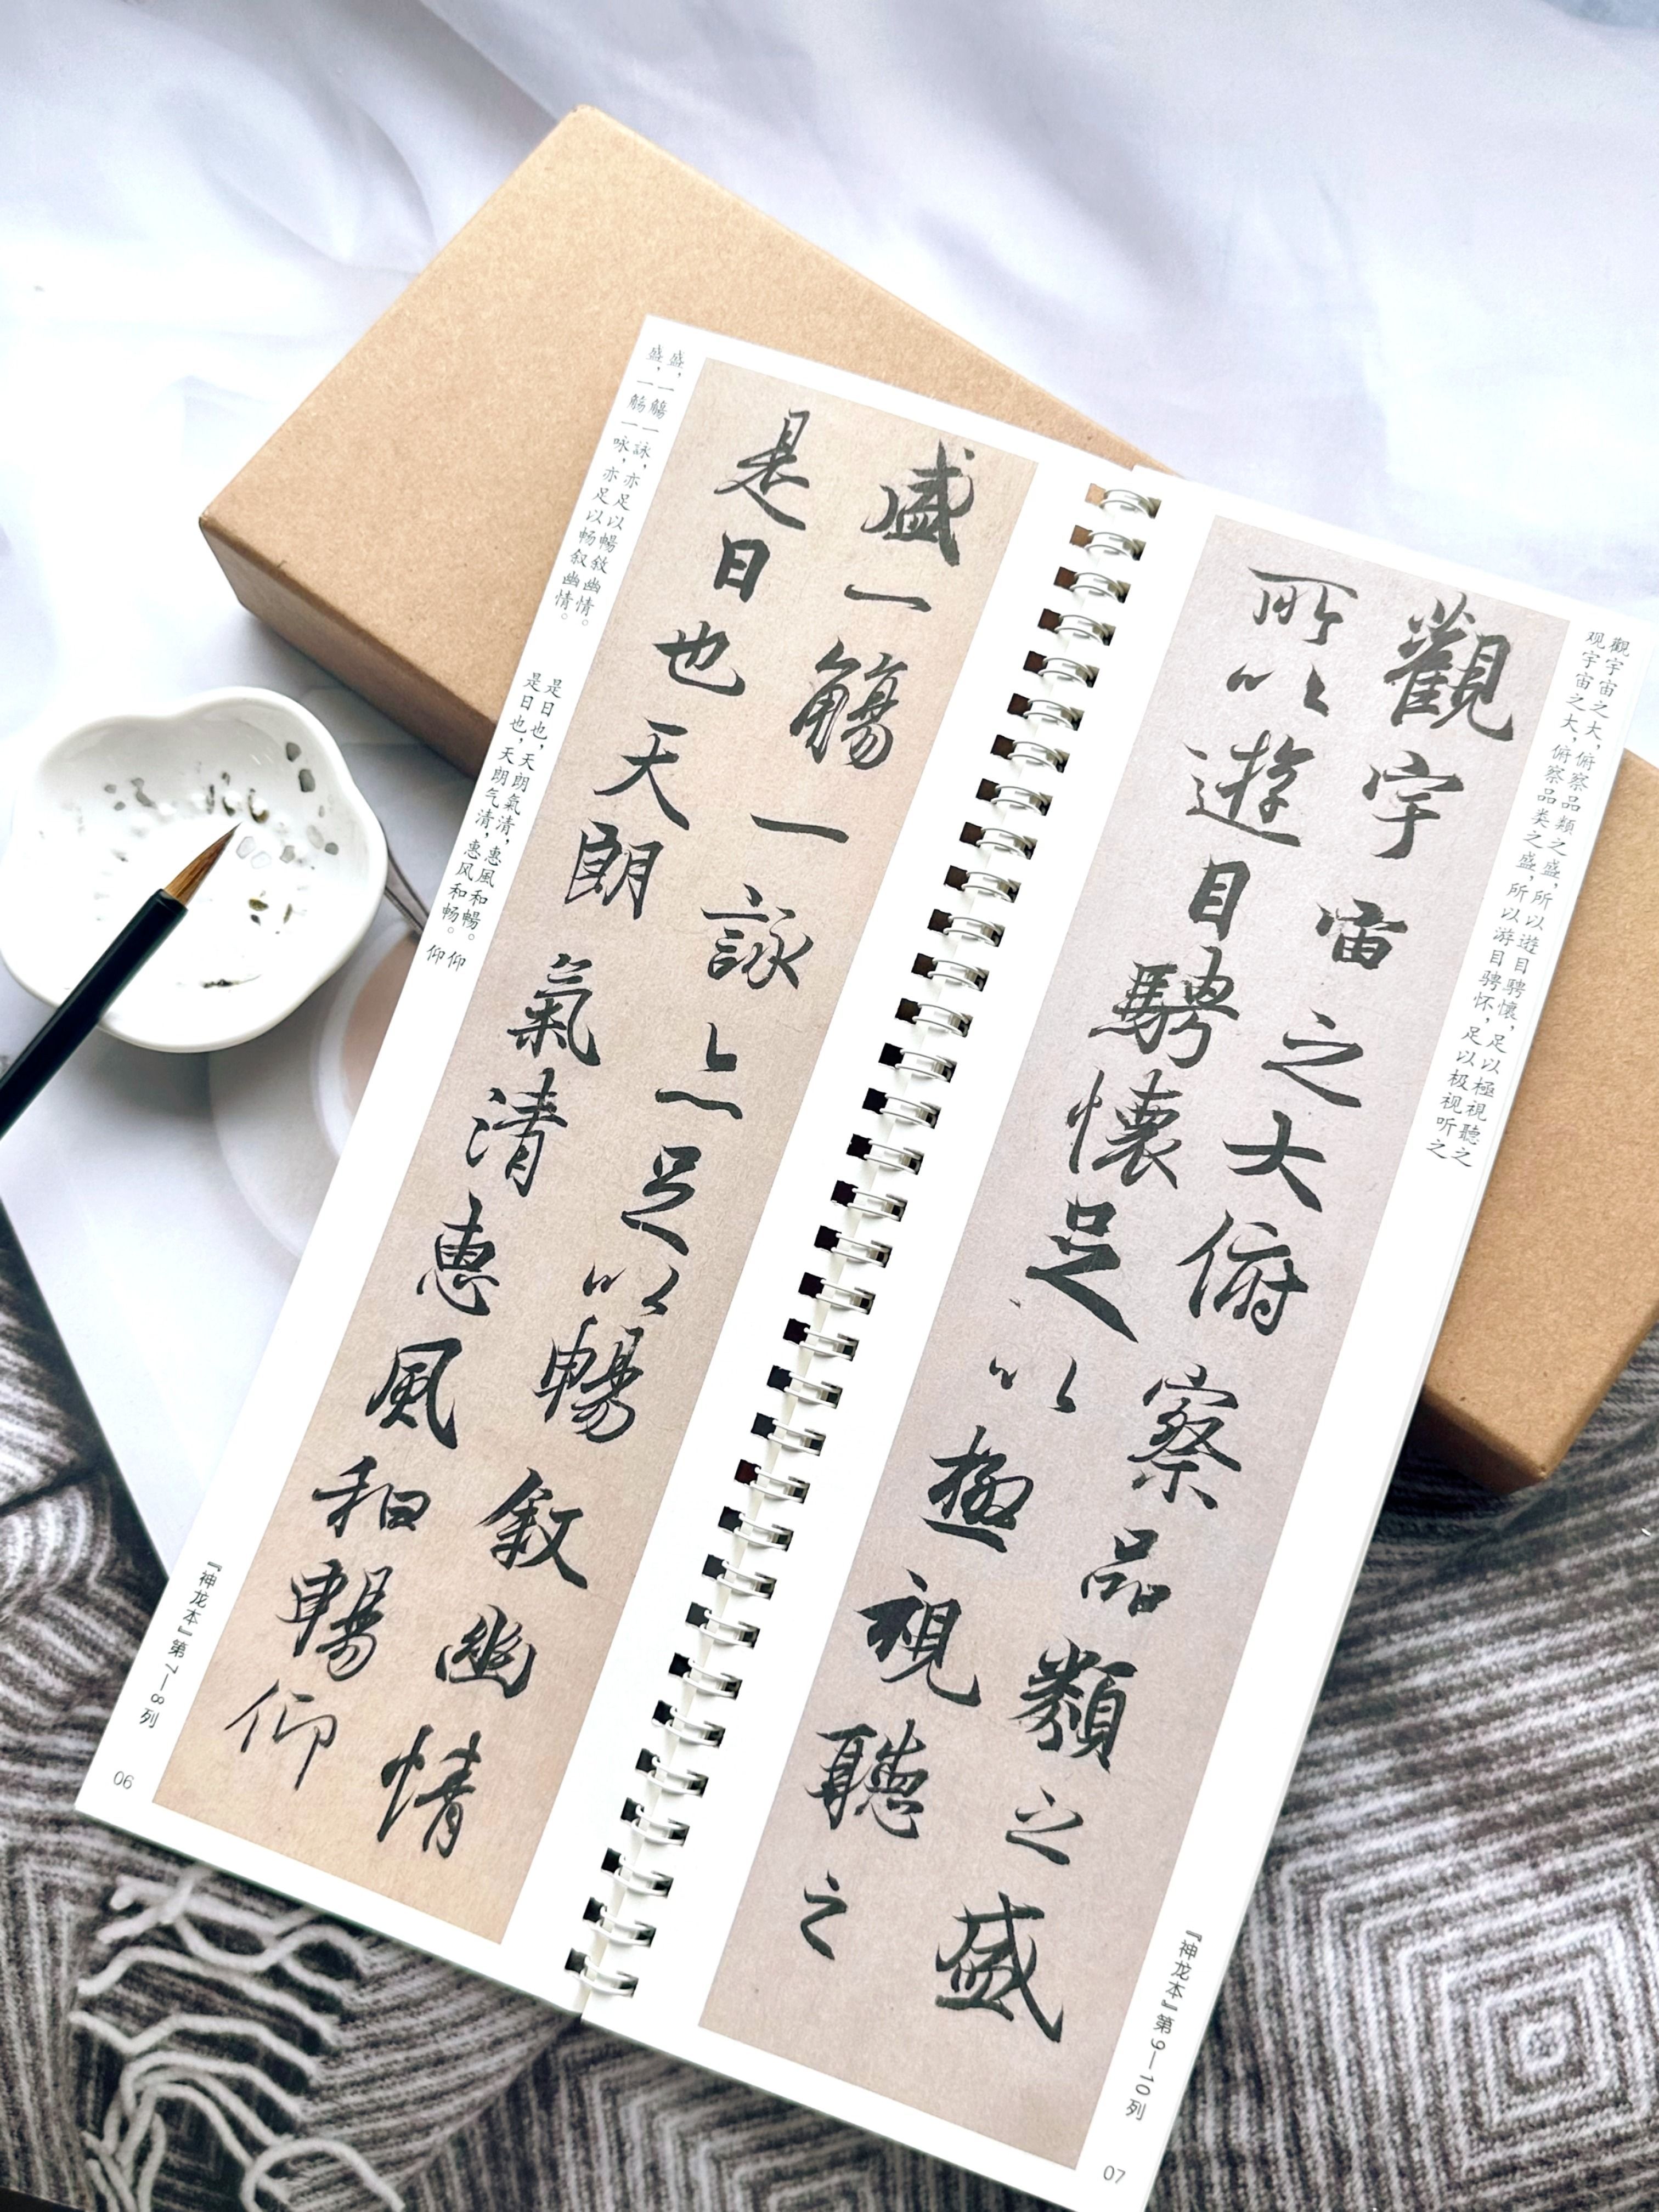 盛一觴一詠亦足以暢敘幽情
是日也天朗氣清惠風和暢仰
盛，一觴一詠，亦足以暢敘幽情。
盛，一觞一咏，亦足以畅叙幽情。
是日也，天朗氣清，惠風和暢。仰
是日也，天朗气清，惠风和畅。仰
『神龙本』第7—8列
06
觀宇宙之大，俯察品類之盛，所以遊目騁懷，足以極視聽之
观宇宙之大，俯察品类之盛，所以游目骋怀，足以极视听之
觀宇宙之大俯察品類之盛
所以遊目騁懷足以極視聽之
『神龙本』第9—10列
07